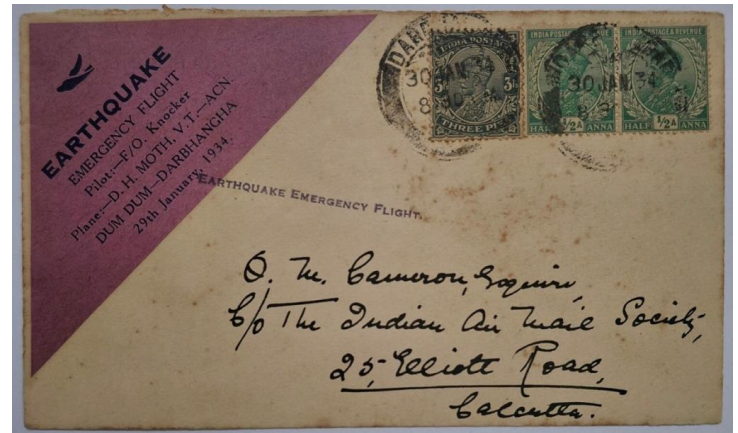 EARTHQUAKE
EMERGENCY FLIGHT
Pilot:—F/O. Knocker
Plane:—D. H. MOTH, V.T.—ACN.
DUM DUM—DARBHANGHA
29th January, 1934.
EARTHQUAKE EMERGENCY FLIGHT.
30 JAN. 34
INDIA POSTAGE
THREE PIES
INDIA POSTAGE & REVENUE
HALF ½A ANNA
30 JAN. 34
INDIA POSTAGE & REVENUE
HALF ½A ANNA
O. M. Cameron, Esquire,
C/o The Indian Air Mail Society,
25, Elliott Road,
Calcutta.